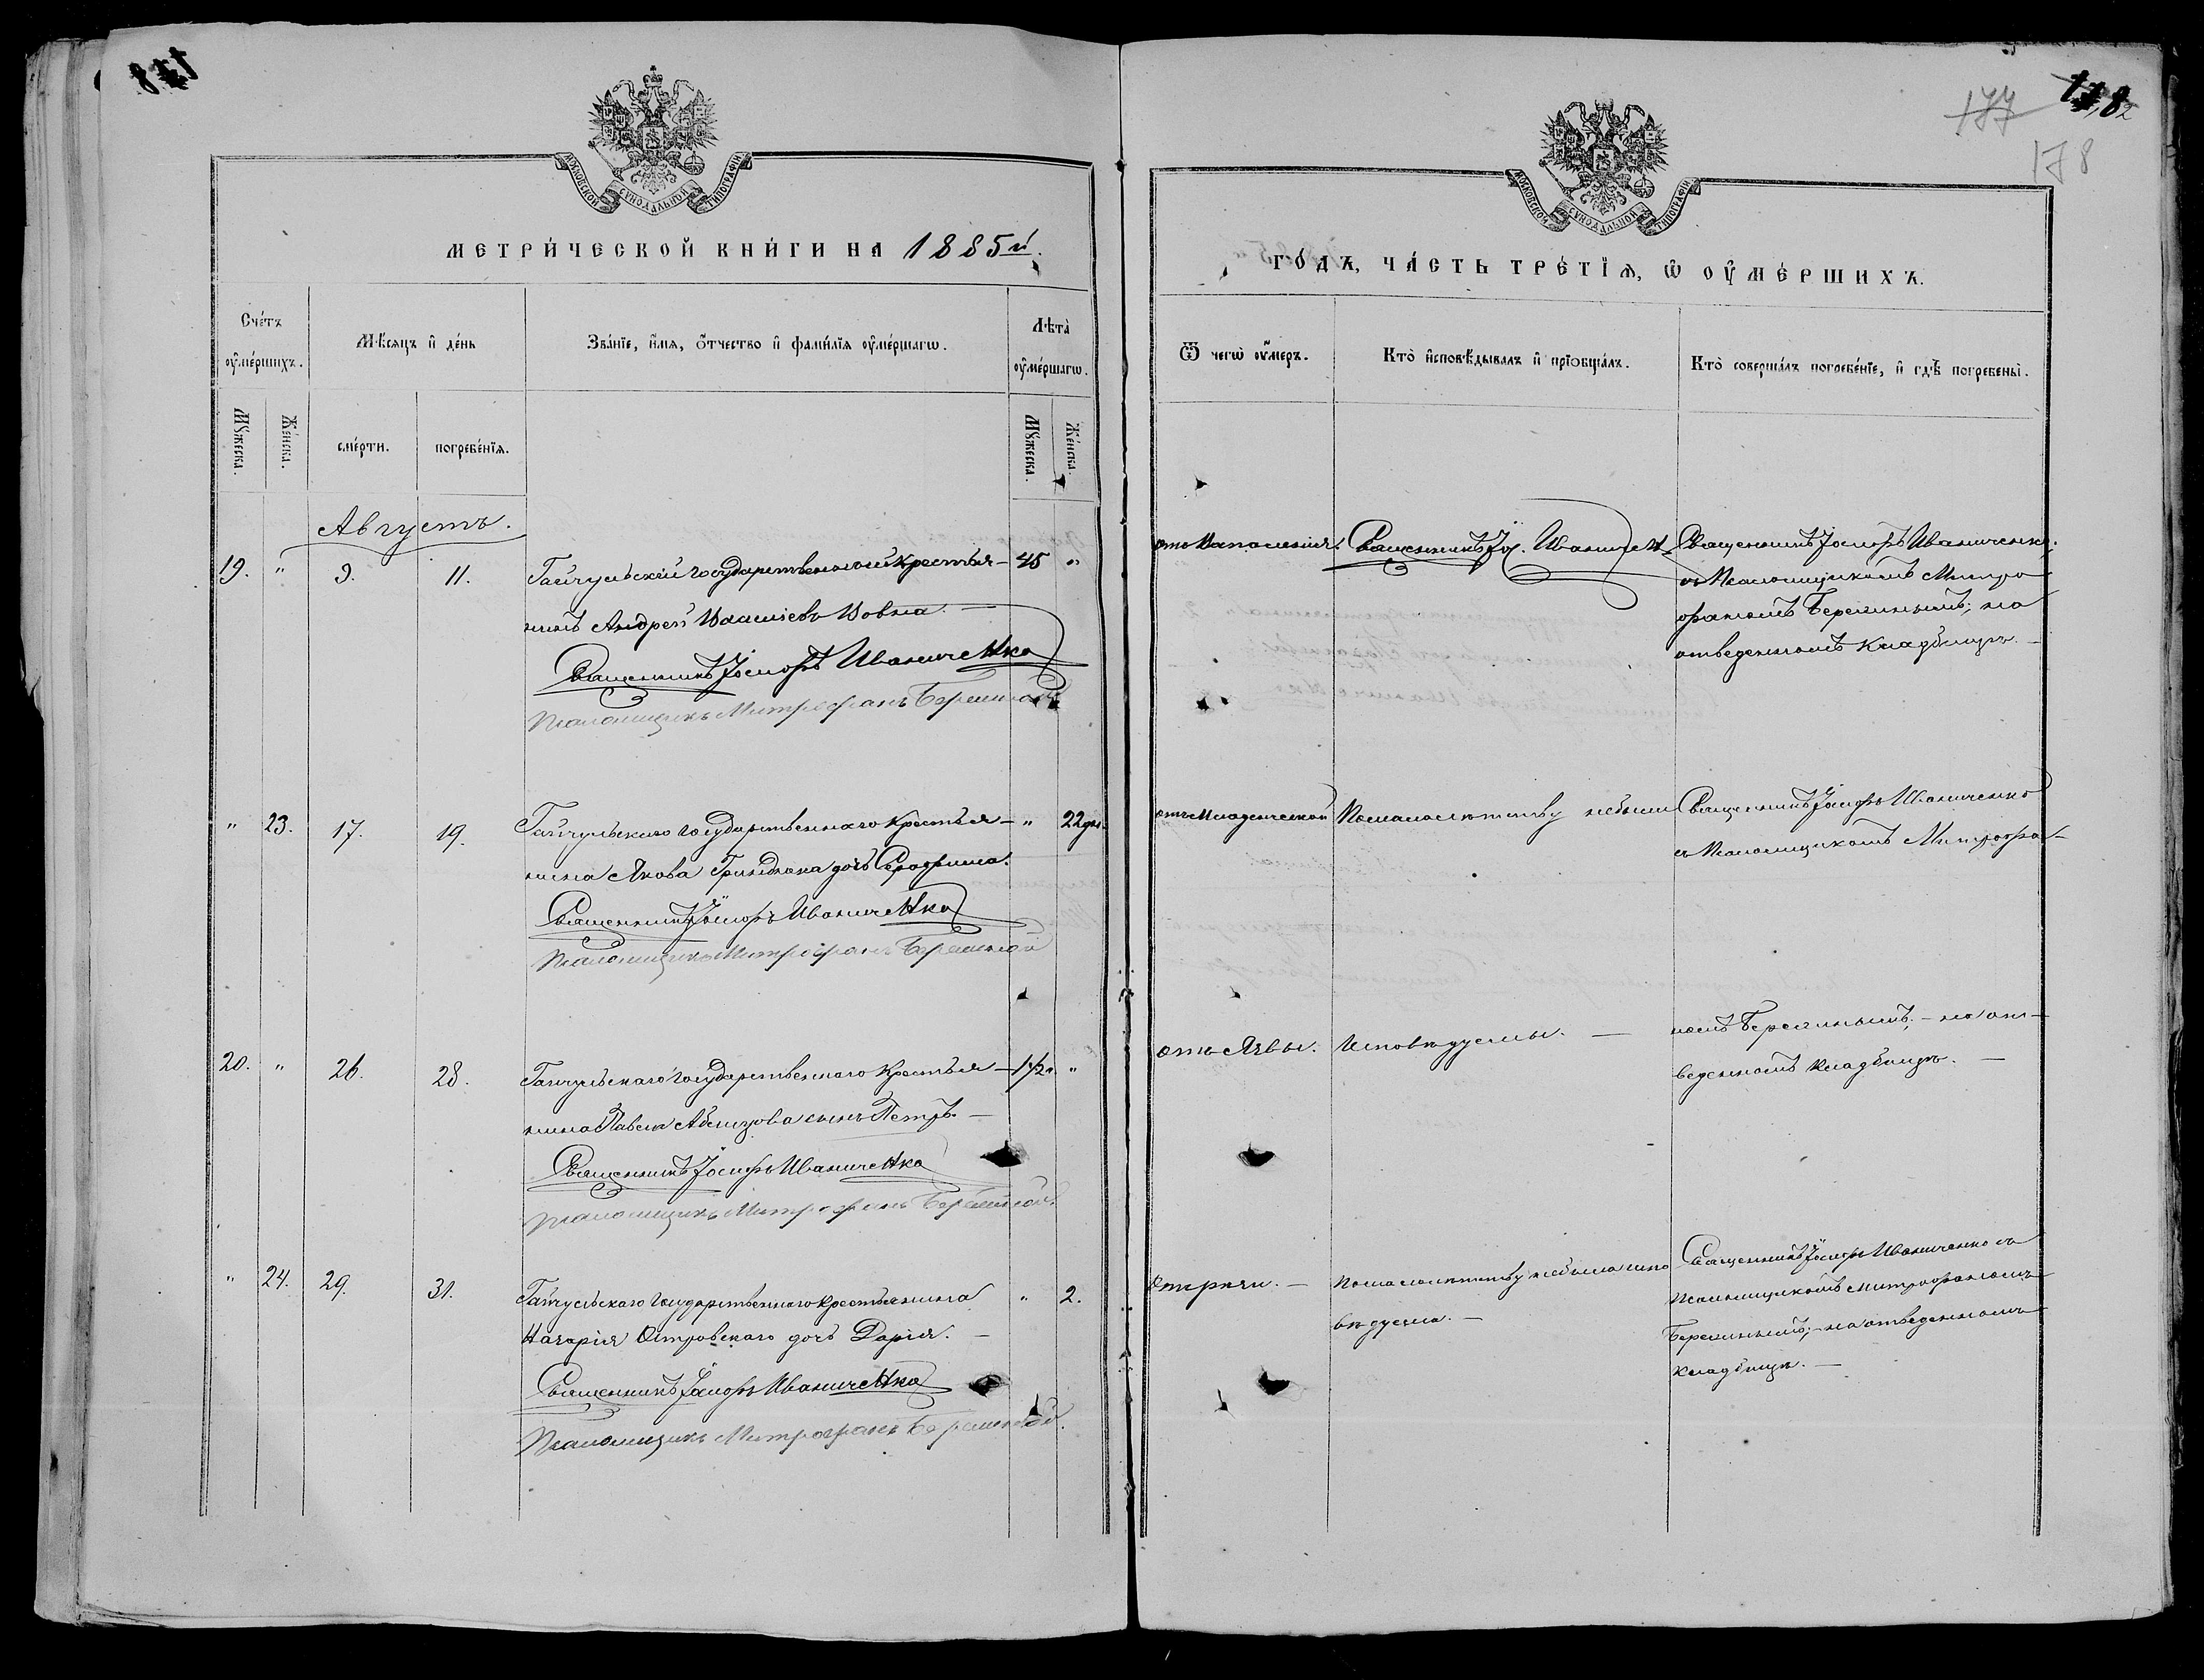 178
177
178
МОСКОВСКОЙ СѴНОДАЛЬНОЙ ТИПОГРАФІИ
МЕТРИ́ЧЕСКОЙ КНИ́ГИ НА 1885й.
Сче́тъ оу҆ме́ршихъ.
Мѣ́сяцъ и҆ де́нь
Зва́нїе, и҆́мя, ѻ҆́тчество и҆ фами́лїя оу҆ме́ршагѡ.
Лѣта̀ оу҆ме́ршагѡ.
Мꙋ́жеска.
Же́нска.
сме́рти.
погребе́нїя.
Мꙋ́жеска.
Же́нска.
Августъ.
19. " 9. 11. Гайчульскій Государственный Крестья- 45 "
нинъ Андрей Вовна.
Священникъ Іосифъ Иваниченко
Псаломщикъ Митрофанъ Бережной
" 23. 17. 19. Гайчульскаго Государственнаго Крестья- " 22 дн.
нина Якова дочь Серафима.
Священникъ Іосифъ Иваниченко
Псаломщикъ Митрофанъ Бережной
20. " 26. 28. Гайчульскаго Государственнаго Крестья- 1½ "
нина Павла сынъ Петръ. —
Священникъ Іосифъ Иваниченко
Псаломщикъ Митрофанъ Бережной
" 24. 29. 31. Гайчульскаго Государственнаго Крестьянина " 2.
Назарія Островскаго дочь Дарія. —
Священникъ Іосифъ Иваниченко
Псаломщикъ Митрофанъ Бережной.
МОСКОВСКОЙ СѴНОДАЛЬНОЙ ТИПОГРАФІИ
ГО́ДЪ, ЧА́СТЬ ТРЕ́ТЇѦ, Ѡ҆ ОУ҆МЕ́РШИХЪ.
Ѿ чегѡ̀ оу҆́меръ.
Кто̀ и҆сповѣ́дывалъ и҆ прїѡбща́лъ.
Кто̀ соверша́лъ погребе́нїе, и҆ гдѣ̀ погребены̀.
отъ Воспаленія. Священникъ Іос. Иваничен. Священникъ Іосифъ Иваниченко
съ Псаломщикомъ Митро
фаномъ Бережнымъ; на
отведенномъ кладбищѣ. —
отъ Младенческой По малолѣтству не были Священникъ Іосифъ Иваниченко
съ Псаломщикомъ Митрофа-
отъ Исповѣдуемы. — номъ Бережнымъ; — на от-
веденномъ кладбищѣ. —
По малолѣтству не была испо Священникъ Іосифъ Иваниченко съ
вѣдуема. — Псаломщикомъ Митрофаномъ
Бережнымъ; — на отведенномъ
кладбищѣ. —